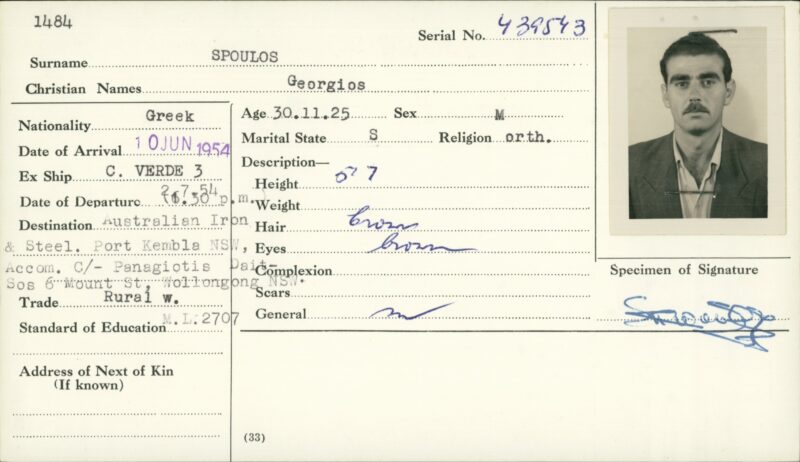 1484
Serial No. 439543
Surname SPOULOS
Christian Names Georgios
Nationality Greek
Date of Arrival 10 JUN 1954
Ex Ship C. VERDE 3
Date of Departure 2.7.54 (6.30 p.m.
Destination Australian Iron
& Steel. Port Kembla NSW,
Accom. C/- Panagiotis Dait-
Sos 6 Mount St, Wollongong NSW.
Trade Rural w.
Standard of Education M.L.2707
Address of Next of Kin
(If known)
Age 30.11.25 Sex M
Marital State S Religion orth.
Description—
Height 5 7
Weight
Hair brown
Eyes brown
Complexion
Scars
General
(33)
Specimen of Signature